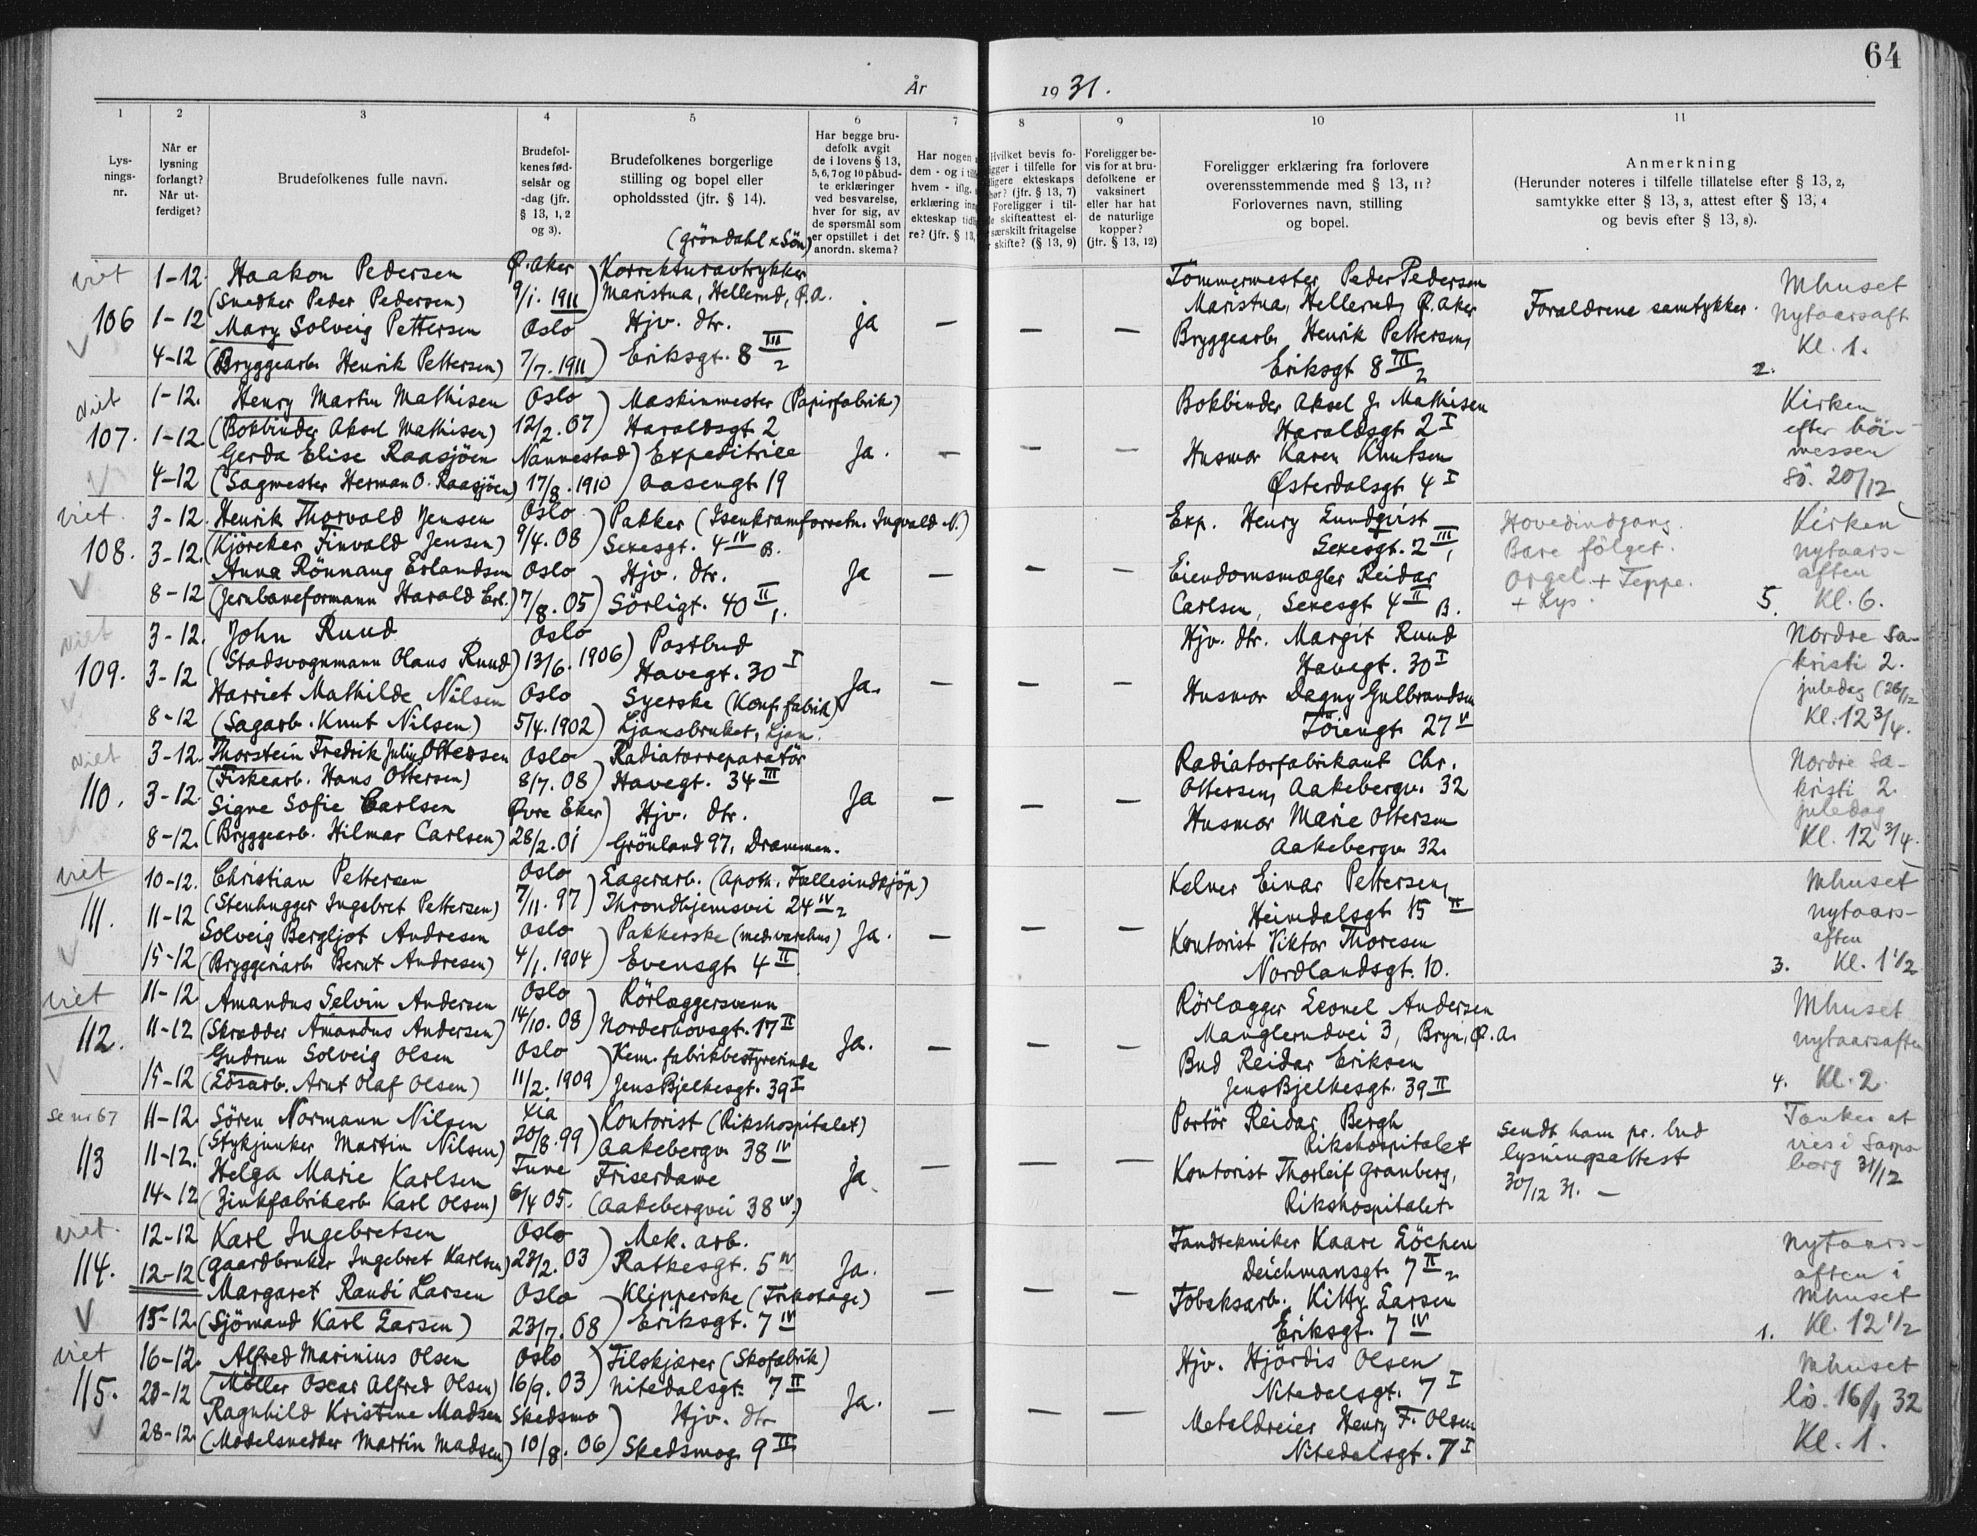 64
År 1931.
1 2 3 4 5 6 7 8 9 10 11
Lysningsnr.
Når er lysning forlangt? Når utferdiget?
Brudefolkenes fulle navn.
Brudefolkenes fødselsår og -dag (jfr. § 13, 1, 2 og 3).
Brudefolkenes borgerlige stilling og bopel eller opholdssted (jfr. § 14).
Har begge brudefolk avgit de i lovens § 13, 5, 6, 7 og 10 påbudte erklæringer ved besvarelse, hver for sig, av de spørsmål som er opstillet i det anordn. skema?
Foreligger bevis for at brudefolkene er vaksinert eller har hat de naturlige kopper? (jfr. § 13, 12)
Foreligger erklæring fra forlovere overensstemmende med § 13, 11? Forlovernes navn, stilling og bopel.
Anmerkning
(Herunder noteres i tilfelle tillatelse efter § 13, 2, samtykke etter § 13, 3, attest efter § 13, 4 og bevis efter § 13, 8).
(Gröndahl & Sön)
viet 1-12. Haakon Pedersen Ø. Aker Korrekturavtrykker Tömmermester Peder Pedersen Mhuset
(Snedker Peder Pedersen) 9/1. 1911 Maristua, Hellerud, Ø.A. Maristua, Hellerud, Ø. Aker Foraldrene samtykker. nytaarsaft
106 1-12 Mary Solveig Pettersen Oslo Hjv. dtr. Ja — — — Bryggearb. Henrik Pettersen, Kl. 1.
4-12 (Bryggearb. Henrik Pettersen) 7/7. 1911 Eriksgt. 8 III 2 Eriksgt 8 III 2 2.
viet 1-12. Henry Martin Mathisen Oslo Maskinmester (Papirfabrik) Bokbinder Aksel J. Mathisen Kirken
107. 1-12 (Bokbinder Aksel Mathisen) 12/2. 07 Haraldsgt 2 Haraldsgt 2 I efter höi-
Gerda Elise Raasjöen Nannestad Expeditrice Ja. — — — Husmor Karen Knutsen messen
4-12 (Sagmester Herman O. Raasjöen) 17/8. 1910 Aasengt 19 Østerdalsgt 4 I Sö. 20/12
viet. 3-12. Henrik Thorvald Jensen Oslo Pakker (Isenkramforretn. Ingvald N.) Exp. Henry Lundqvist Hovedindgang. Kirken
108. 3-12. (Kjöreker Finvald Jensen) 9/4. 08 Sexesgt. 4 IV B. Sexesgt. 2 III 1 Bare fölget. nytaars-
Anna Rönnaug Erlandsen Oslo Hjv. dtr. Ja — — — Eiendomsmægler Reidar Orgel + Teppe. aften
8-12 (Jernbaneformann Harald Erl.) 7/8. 05 Sörligt. 40 II 1. Carlsen, Sexesgt 4 II B. + Lys. 5. Kl. 6.
viet 3-12. John Ruud Oslo Postbud Hjv. dtr. Margit Ruud Nordre Sa-
109. 3-12 (Stadsvognmann Olaus Ruud) 13/6. 1906 Havegt. 30 I Havegt. 30 I kristi 2.
Harriet Mathilde Nilsen Oslo Syerske (Konf. fabrik) Ja. — — — Husmor Dagny Gulbrandsen juledag (26/12
8-12 (Sagarb. Knut Nilsen) 5/4. 1902 Ljansbruket, Ljan. Töiengt 27 V Kl. 12 3/4.
viet 3-12. Thorstein Fredrik Julius Ottersen Oslo Radiatorreparatör Radiatorfabrikant Chr. Nordre Sa-
110. 3-12. (Fiskearb. Hans Ottersen) 8/7. 08 Havegt. 34 III Ottersen, Aakebergv. 32 kristi 2.
Signe Sofie Carlsen Øvre Eker Hjv. dtr. Ja — — — Husmor Marie Ottersen juledag
8-12. (Bryggearb. Hilmar Carlsen) 28/2. 01 Grönland 97, Drammen. Aakebergv 32. Kl. 12 3/4.
viet 10-12. Christian Pettersen Oslo Lagerarb. (Apoth. Fællesindkjöp) Kelner Einar Pettersen, Mhuset
111. 11-12 (Stenhugger Ingebret Pettersen) 7/11. 97 Throndhjemsvei 24 IV 2 Heimdalsgt 15 II nytaars-
Solveig Bergljot Andresen Oslo Pakkerske (med. varehus) Ja. — — — Kontorist Viktor Thoresen aften
15-12 (Bryggeriarb. Bernt Andresen) 4/1. 1904 Evensgt 4 II Nordlandsgt. 10. 3. Kl. 1 1/2
viet 11-12 Amandus Selvin Andersen Oslo Rörlæggersvenn Rörlægger Leonel Andersen Mhuset
112. 11-12 (Skrædder Amandus Andersen) 14/10. 08 Norderhovsgt. 17 II Manglerudvei 3, Bryn, Ø.A. nytaarsaften
Gudrun Solveig Olsen Oslo Kem. fabrikbestyrerinde Ja. — — — Bud Reidar Eriksen
15-12 (Losarb. Arnt Olaf Olsen) 11/2. 1909 Jens Bjelkesgt. 39 I Jens Bjelkesgt. 39 II 4. Kl. 2.
se nr 67 11-12. Sören Normann Nilsen Kontorist (Rikshospitalet) Portör Reidar Bergh Sendt ham pr. bud Tænker at
113 11-12. (Stykjunker Martin Nilsen) 20/8. 99 Aakebergv 38 IV Rikshospitalet lysningsattest vies i Sarps-
Helga Marie Karlsen Tune Friserdame Ja. — — — Kontorist Thorleif Granberg, 30/12 31. — borg 31/12
14-12 (Zinkfabrikarb Karl Olsen) 6/4 05. (Aakebergvei 38 IV.) Rikshospitalet.
viet. 12-12 Karl Ingebretsen Oslo Mek. arb. Tandtekniker Kaare Löchen Nytaars-
114. 12-12 (Gaardbruker Ingebret Karlsen) 23/2. 03 Ratkesgt. 5 IV Deichmansgt. 7 II 2 aften i
Margaret Randi Larsen Oslo Klipperske (Trikotage) Ja. — — — Tobaksarb. Kitty Larsen Mhuset
15-12. (Sjömand Karl Larsen) 23/7. 08 Eriksgt. 7 IV Eriksgt. 7 IV 1. Kl. 12 1/2
viet 16-12. Alfred Marinius Olsen Oslo Tilskjærer (Skofabrik) Hjv. Hjördis Olsen Mhuset
115. 28-12 (Möller Oscar Alfred Olsen) 16/9. 03 Nitedalsgt. 7 II Nitedalsgt. 7 I lö. 16/1 32
Ragnhild Kristine Madsen Skedsmo Hjv. dtr Ja. — — — Metaldreier Henry F. Olsen Kl. 1.
28-12. (Modelsnedker Martin Madsen) 10/8. 06 Skedsmog. 9 II Nitedalsgt. 7 I